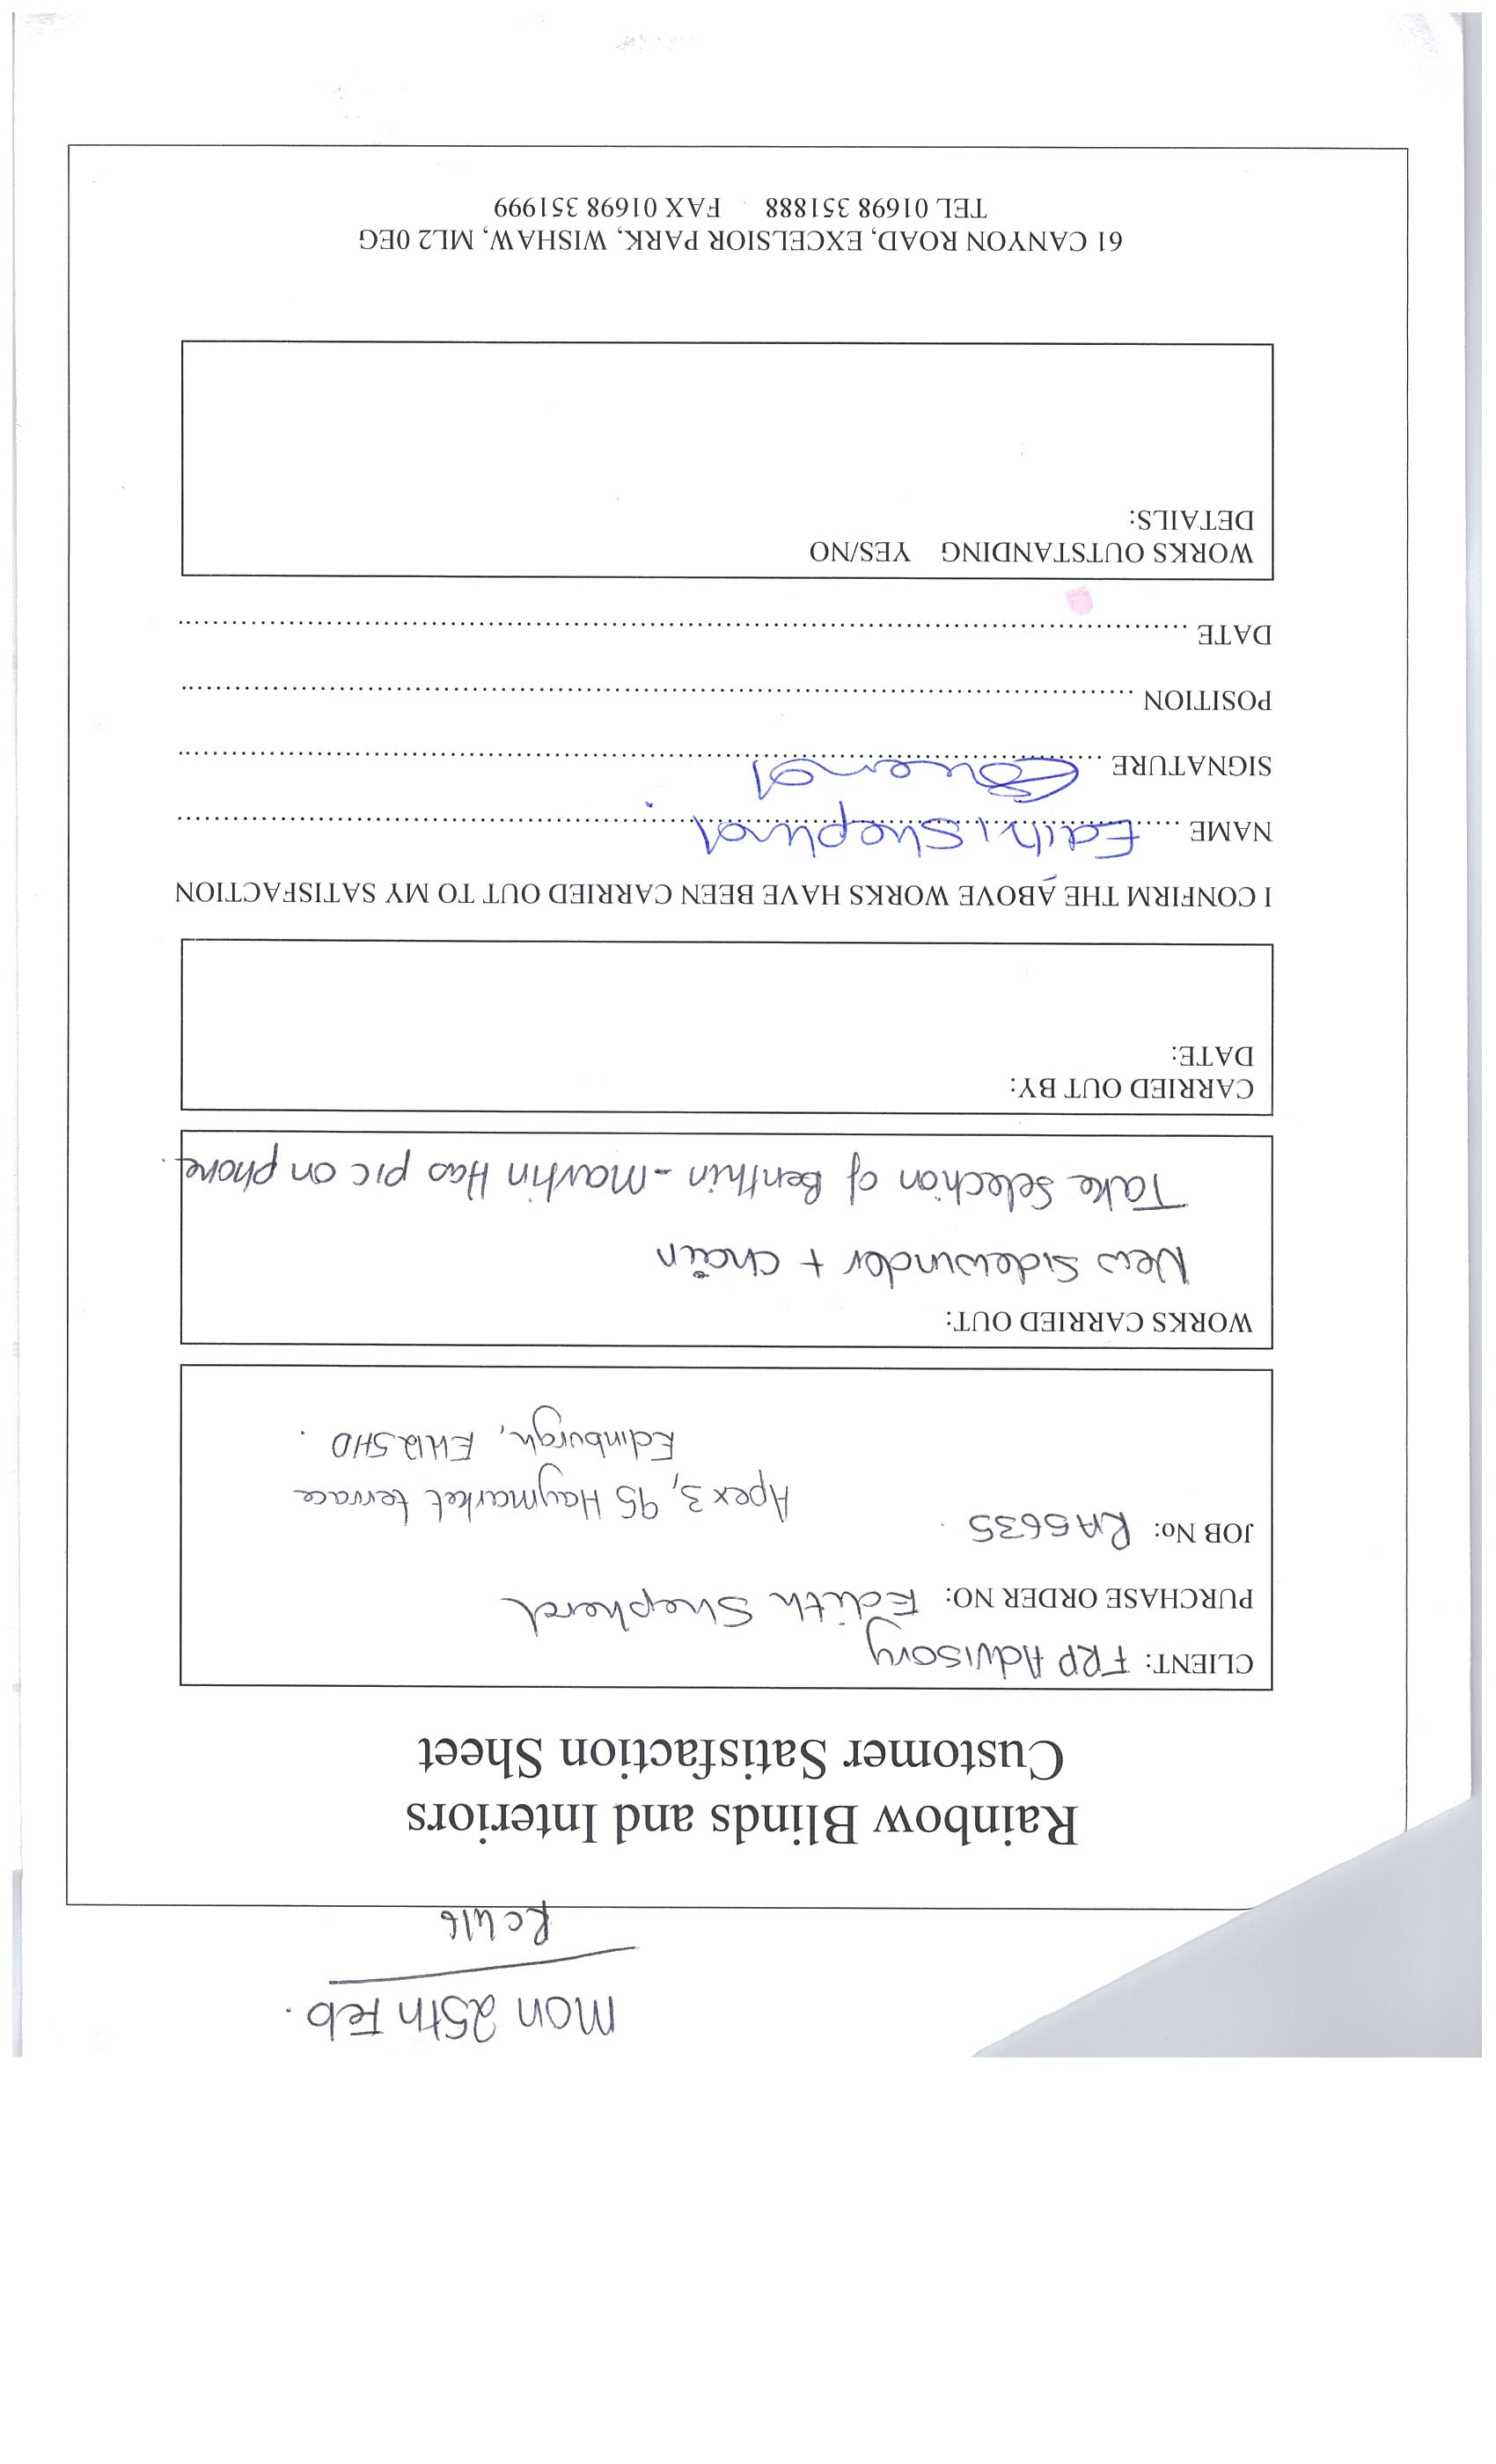 Mon 25th Feb.
Rainbow Blinds and Interiors
Customer Satisfaction Sheet
CLIENT: FRP Advisory
PURCHASE ORDER NO: Edith Shepherd
JOB No: RA5635
Apex 3, 95 Haymarket terrace
Edinburgh, EH12 5HD.
WORKS CARRIED OUT:
New Sidewinder + Chain
Take Selection of Benthin - Martin Has pic on phone.
CARRIED OUT BY:
DATE:
I CONFIRM THE ABOVE WORKS HAVE BEEN CARRIED OUT TO MY SATISFACTION
NAME Edith Shepherd
SIGNATURE
POSITION
DATE
WORKS OUTSTANDING YES/NO
DETAILS:
61 CANYON ROAD, EXCELSIOR PARK, WISHAW, ML2 0EG
TEL 01698 351888 FAX 01698 351999